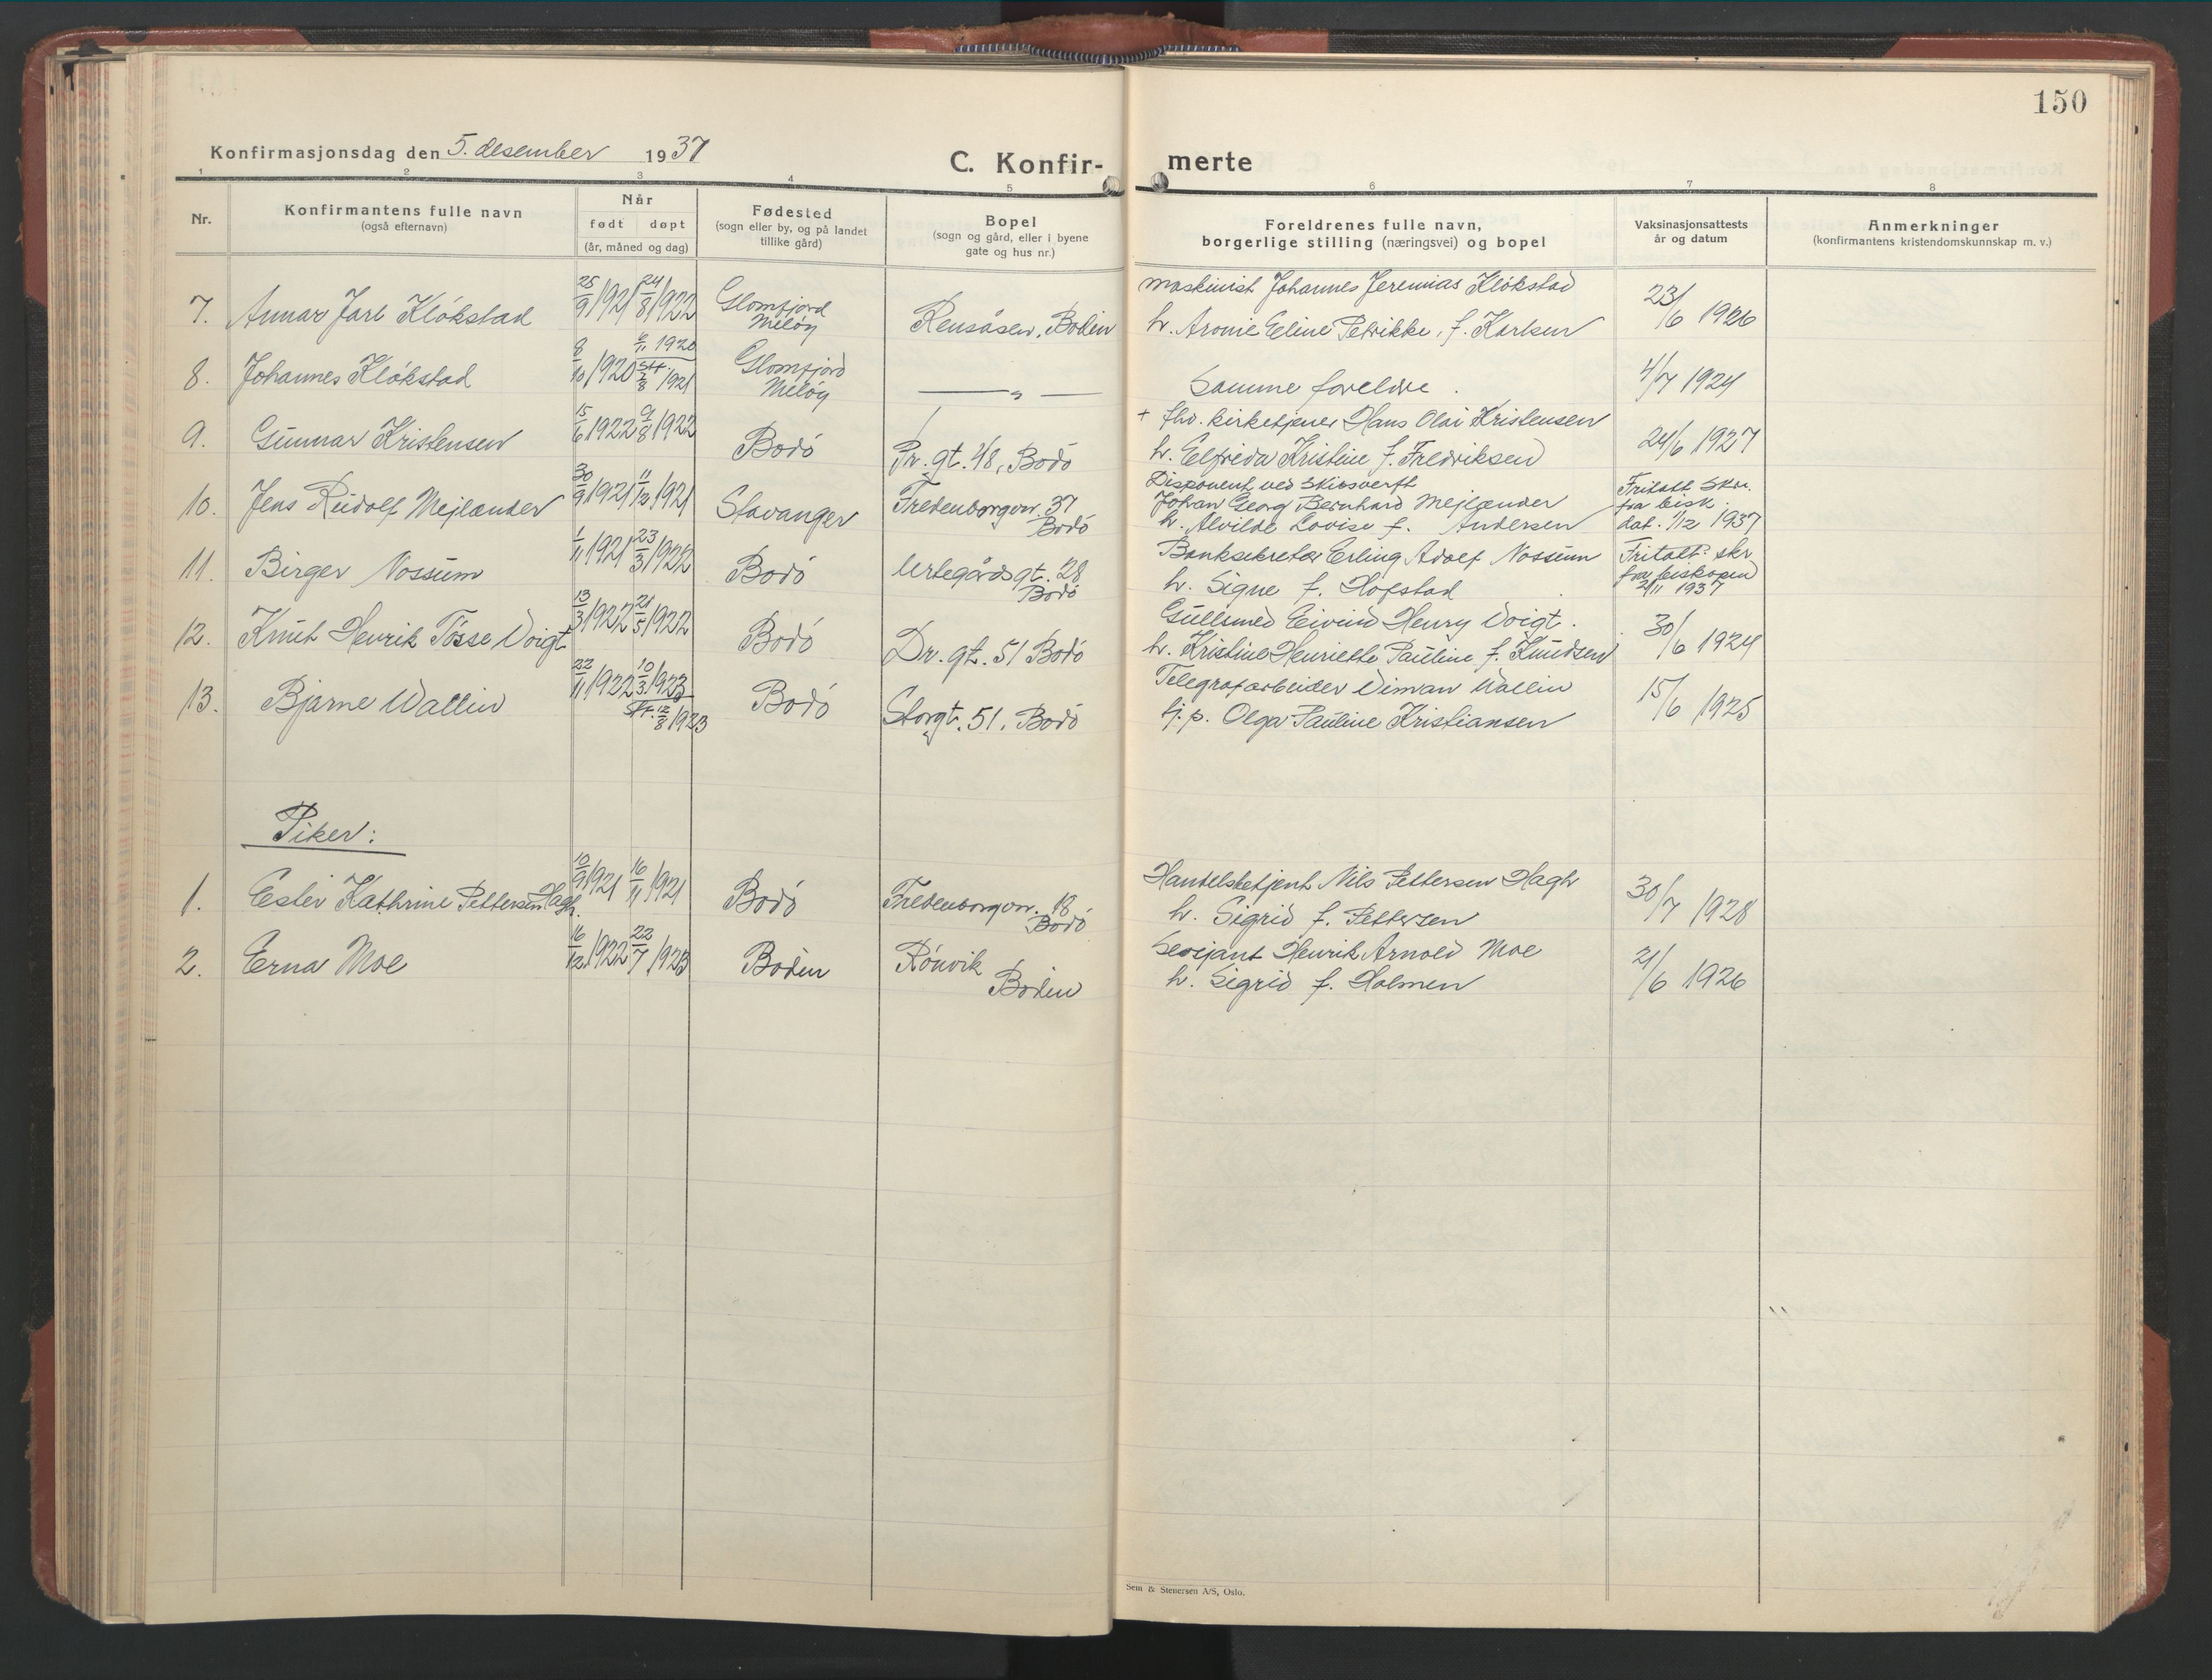 150
Konfirmasjonsdag den 5. desember 1937
C. Konfir- merte
1 2 3 4 5 6 7 8
Nr.
Konfirmantens fulle navn
(også efternavn)
Når
født døpt
(år, måned og dag)
Fødested
(sogn eller by, og på landet
tillike gård)
Bopel
(sogn og gård, eller i byene
gate og hus nr.)
Foreldrenes fulle navn,
borgerlige stilling (næringsvei) og bopel
Vaksinasjonsattests
år og datum
Anmerkninger
(konfirmantens kristendomskunnskap m. v.)
7. Annar Jarl Klökstad 25/9 1921 24/8 1922 Glomfjord Melöy Rensåsen, Bodin maskinist Johannes Jeremias Klökstad
h. Aronie Eline Petrikke, f. Karlsen 23/6 1926
8. Johannes Klökstad 8/10 1920 6/11 1920 St. 7/8 1921 Glomfjord Melöy — „ — Samme foreldre. 4/7 1924
9. Gunnar Kristensen 15/6 1922 9/8 1922 Bodö Pr. gt. 48, Bodö + fhv. kirketjener Hans Olai Kristensen
h. Elfrida Kristine f. Fredriksen 24/6 1927
10. Jens Rudolf Mejlænder 30/9 1921 11/12 1921 Stavanger Fredenborgvn. 37 Bodö Disponent ved Skibsverft
Johan Georg Bernhard Mejlænder
h. Alvilde Lovise f. Andersen Fritatt skr. fra bisk. dat. 1/12 1937
11. Birger Nossum 1/11 1921 23/3 1922 Bodö Urtegårdsgt. 28 Bodö Banksekretær Erling Adolf Nossum
h. Signe f. Hofstad Fritatt skr fra biskopen 2/11 1937
12. Knut Henrik Tösse Voigt 13/3 1922 21/5 1922 Bodö Dr. gt. 51 Bodö Gullsmed Eivind Henry Voigt.
h. Kristine Henriette Pauline f. Knudsen 30/6 1924
13. Bjarne Wallin 22/11 1922 10/3 1923 St. 12/8 1923 Bodö Storgt. 51, Bodö Telegrafarbeider Viman Wallin
tj.p. Olga Pauline Kristiansen 15/6 1925
Piker:
1. Eslev Kathrine Pettersen Hagh. 10/9 1921 16/11 1921 Bodö Fredenborgvn. 18 Bodö Handelsbetjent Nils Pettersen Hagh
h. Sigrid f. Pettersen 30/7 1928
2. Erna Moe 16/12 1922 22/7 1923 Bodin Rönvik Bodin Sersjant Henrik Arnold Moe
h. Sigrid f. Holmen 21/6 1926
Sem & Stenersen A/S, Oslo.